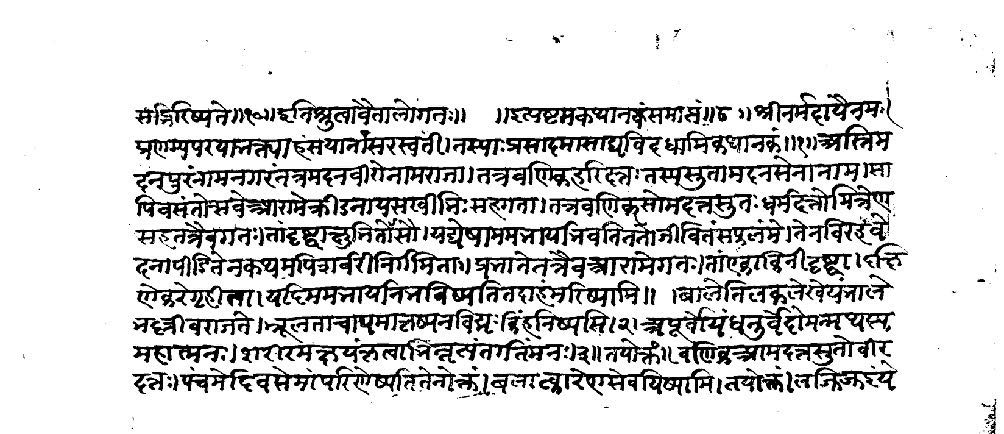 सद्भिरिष्यते॥१०॥इतिश्रुत्वावैतालोगतः॥ ॥इत्यष्टमकथानकंसमाप्तं॥८॥श्रीनर्मदायैनमः।
प्रणम्यपरयाभक्त्याहंसयानांसरस्वतीं।तस्याःप्रसादमासाद्यविदधामिकथानकं॥१॥अस्तिम
दनपुरंनामनगरंतत्रमदनवीरोनामराजा।तत्रवणिक्हरिदत्तःतस्यसुतामदनसेनानाम।सा
पिवसंतोत्सवेआरामेक्रीडनायसखीभिःसहगता।तत्रवणिक्सोमदत्तसुतःधर्मदत्तोमित्रेण
सहतत्रैवगतः।तांदृष्ट्वाचिंतितोसौ।यद्येषाममभार्याभवतितर्तोजीवितंसफलंमे।तेनविरहवे
दनापीडितेनकथमपिशर्वरीनिर्गमिता॥प्रभातेतत्रैवआरामेगतः।तांएकाकिनींदृष्ट्वा।दक्षि
णेकरेगृहीता।यदिममभार्यानभविष्यसितदाहंमरिष्यामि॥ ।बालेतिलकलेखेयंभाले
भल्लीवराजते।भ्रूलताचापमाकृष्यनविद्मःकिंहनिष्यसि।२।अपूर्वोयंधनुर्वेदोमन्मथस्य
महात्मनः।शरीरमक्षयंकृत्वाभिनत्त्यंतर्गतंमनः।३॥तयोक्तं॥वणिक्आमदत्तसुतोवीर
दत्तः।पंचमेदिवसेमांपरिणेष्यतितेनोक्तं।बलात्कारेणसेवयिष्यामि।तयोक्तं।